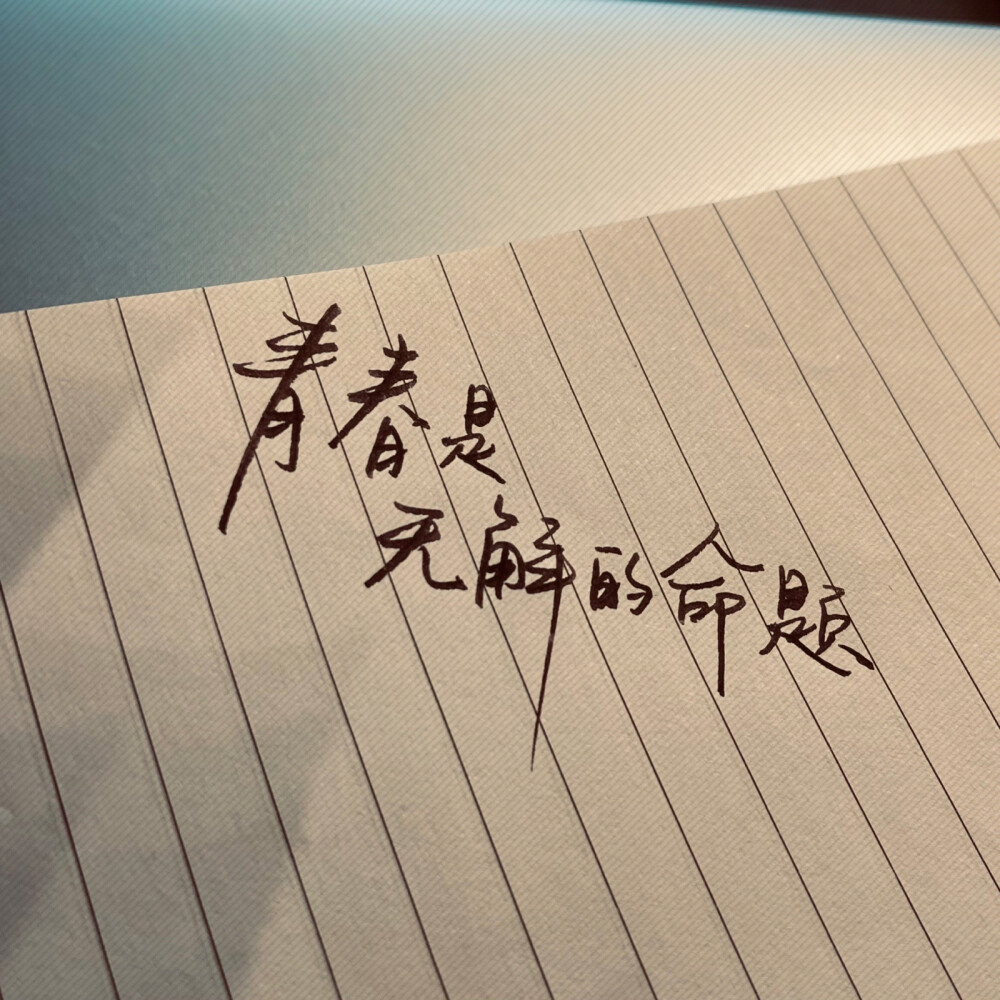 青春是
无解的命题